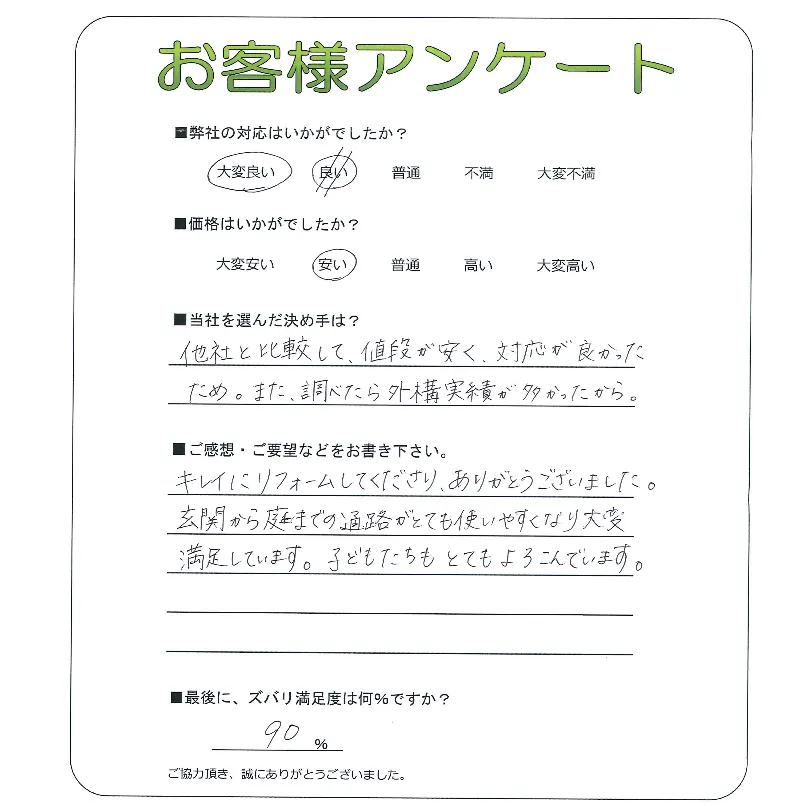 お客様アンケート
■弊社の対応はいかがでしたか？
大変良い 良い 普通 不満 大変不満
■価格はいかがでしたか？
大変安い 安い 普通 高い 大変高い
■当社を選んだ決め手は？
他社と比較して、値段が安く、対応が良かった
ため。また、調べたら外構実績が多かったから。
■ご感想・ご要望などをお書き下さい。
キレイにリフォームしてくださり、ありがとうございました。
玄関から庭までの通路がとても使いやすくなり大変
満足しています。子どもたちもとてもよろこんでいます。
■最後に、ズバリ満足度は何％ですか？
90 %
ご協力頂き、誠にありがとうございました。